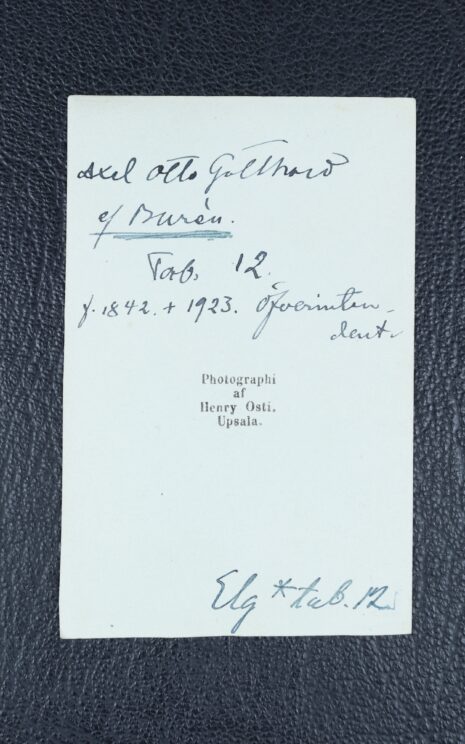 Axel Otto Gotthard
af Burén.
Tab. 12.
f. 1842. + 1923. Öfverinten-
dent.
Photographi
af
Henry Osti,
Upsala.
Elg * tab. 12